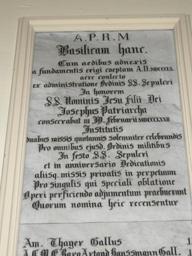 A.P.R.M
Basilicam hanc
Cum aedibus adnexis
a fundamentis erigi coeptam A.D.
aere conlecto
ex administratione Aedinis SS. Sepulcri
In honorem
S.S. Nominis Jesu Filii Dei
Josephus Patriarcha
consecrabat
Institutis
duabus missis quotannis solemniter celebrandis
Pro omnibus ejusd. Aedinis militibus
In festo S.S. Sepulcri
et in anniversario Dedicationis
aliisq. missis privatis in perpetuum
Pro singulis qui speciali oblatione
Operi perficiendo adjumentum praebuerunt
Quorum nomina heic recensentur
Am. Thayer Gallus